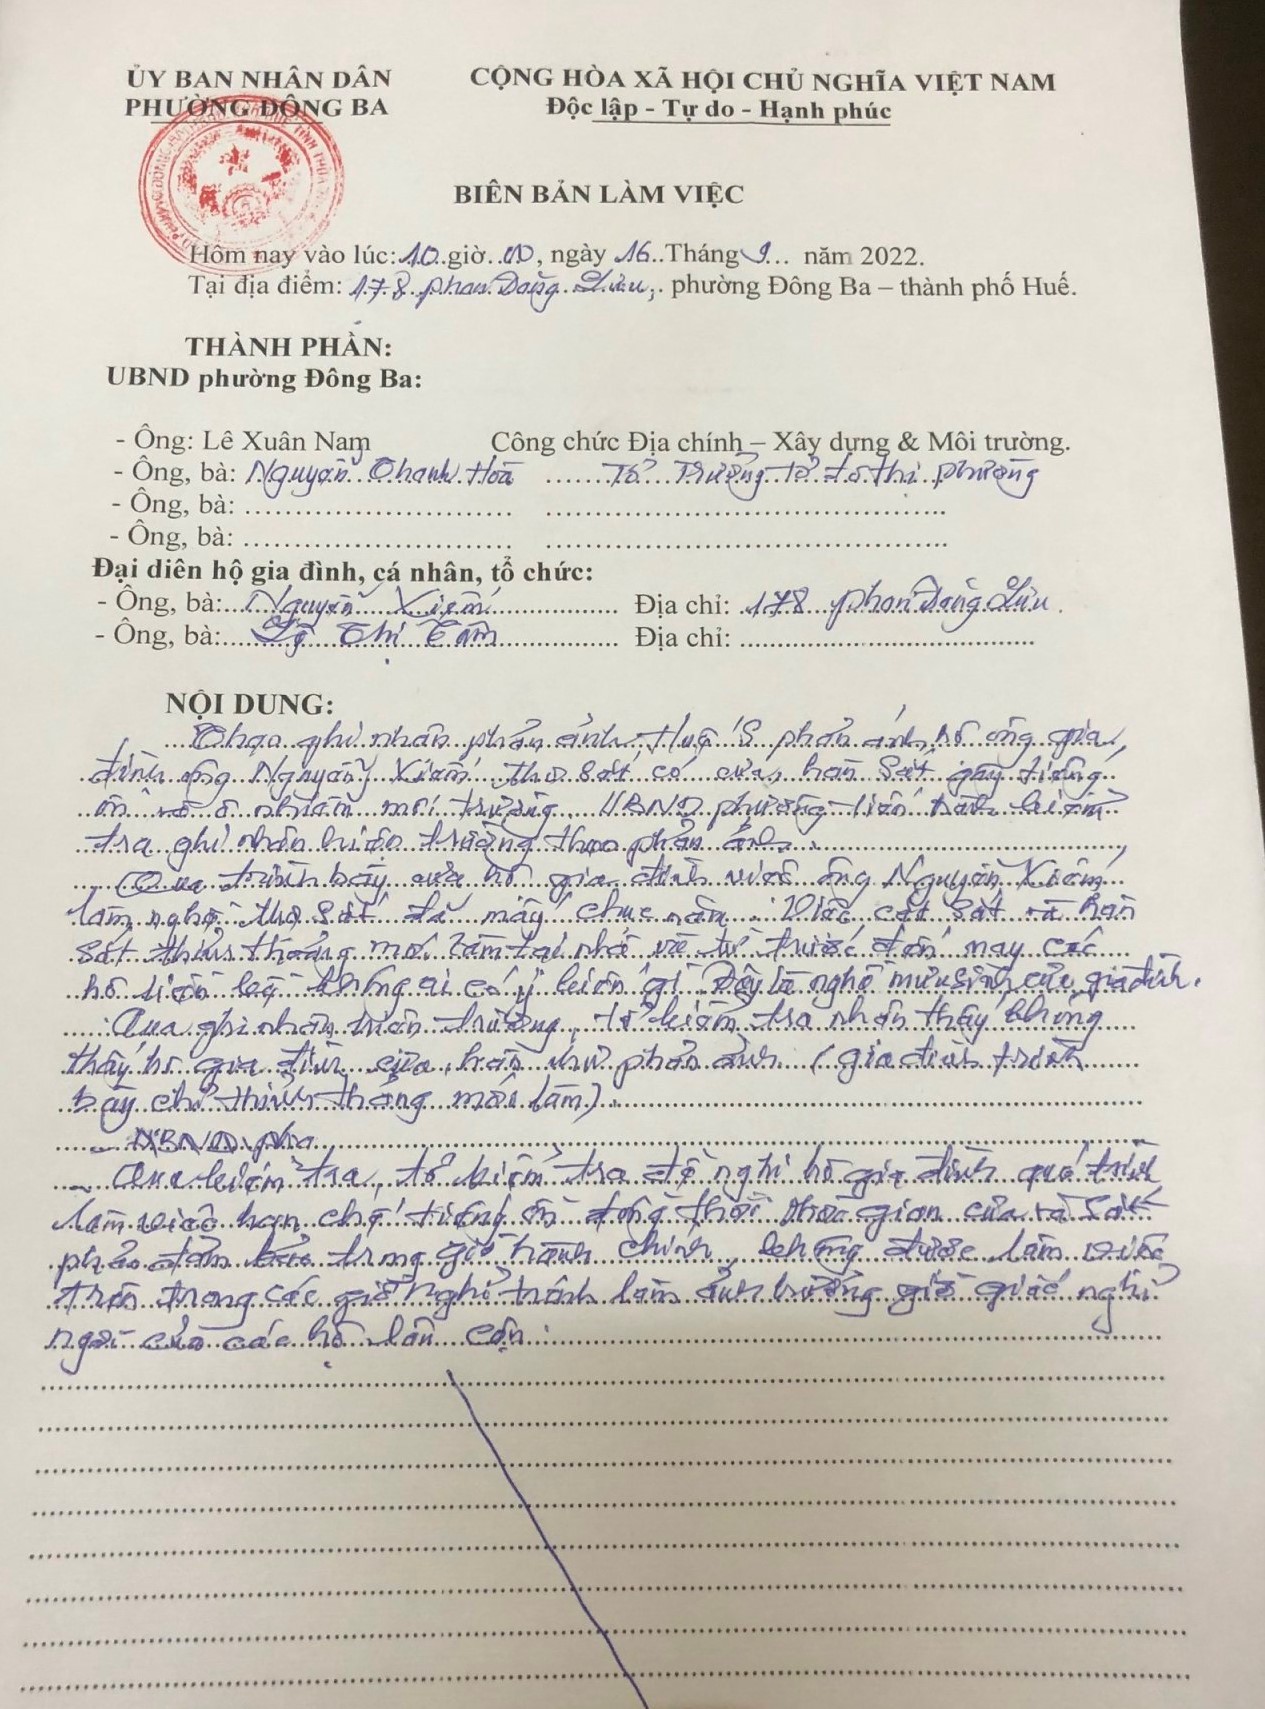 ỦY BAN NHÂN DÂN
PHƯỜNG ĐÔNG BA
CỘNG HÒA XÃ HỘI CHỦ NGHĨA VIỆT NAM
Độc lập - Tự do - Hạnh phúc
BIÊN BẢN LÀM VIỆC
Hôm nay vào lúc: 10 giờ 00, ngày 16 Tháng 9 năm 2022.
Tại địa điểm: 178 Phan Đăng Lưu, phường Đông Ba – thành phố Huế.
THÀNH PHẦN:
UBND phường Đông Ba:
- Ông: Lê Xuân Nam Công chức Địa chính – Xây dựng & Môi trường.
- Ông, bà: Nguyễn Thanh Hoà Tổ Trưởng Tổ đô thị phường
- Ông, bà:
- Ông, bà:
Đại diên hộ gia đình, cá nhân, tổ chức:
- Ông, bà: Nguyễn Xiêm Địa chỉ: 178 Phan Đăng Lưu
- Ông, bà: Lê Thị Tâm Địa chỉ:
NỘI DUNG:
Theo ghi nhận phản ánh Huế S phản ánh hộ ông gia
đình ông Nguyễn Xiêm thợ sắt có cưa, hàn sắt gây tiếng
ồn và ô nhiễm môi trường. UBND phường tiến hành kiểm
tra ghi nhận hiện trường theo phản ánh.
Qua trình bày của hộ gia đình với ông Nguyễn Xiêm
làm nghề thợ sắt đã mấy chục năm. Việc cắt sắt và hàn
sắt thỉnh thoảng mới làm tại nhà và từ trước đến nay các
hộ liền kề không ai có ý kiến gì. Đây là nghề mưu sinh của gia đình.
Qua ghi nhận hiện trường, tổ kiểm tra nhận thấy không
thấy hộ gia đình cưa, hàn như phản ánh (gia đình trình
bày chỉ thỉnh thoảng mới làm).
UBND
Qua kiểm tra, tổ kiểm tra đề nghị hộ gia đình quá trình
làm việc hạn chế tiếng ồn đồng thời thời gian cưa và sắt
phải đảm bảo trong giờ hành chính, không được làm việc
trên trong các giờ nghỉ tránh làm ảnh hưởng giờ giấc nghỉ
ngơi của các hộ lân cận.